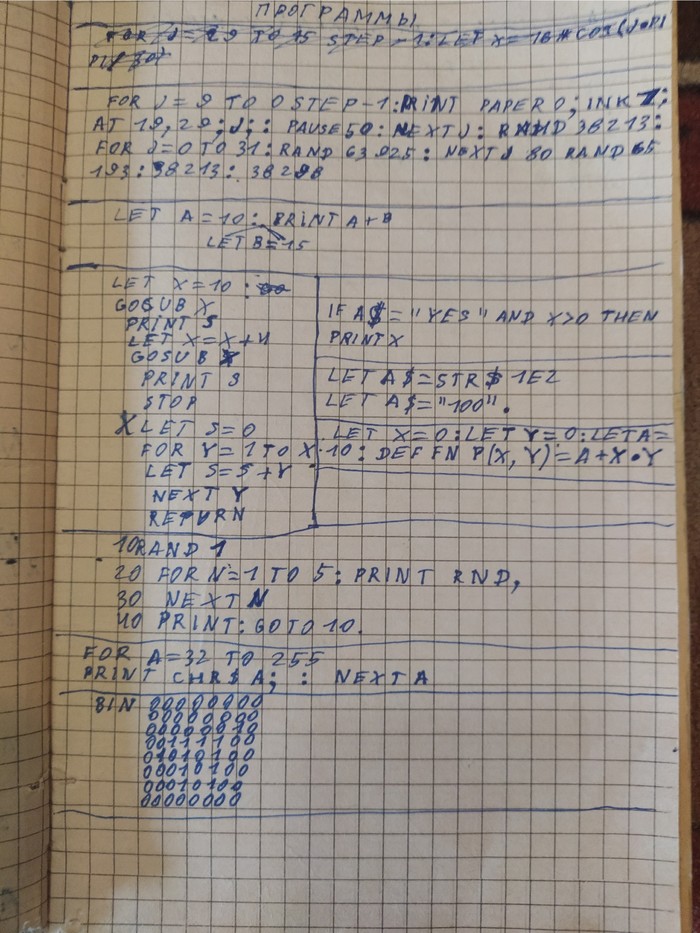 ПРОГРАММЫ
FOR J=29 TO 15 STEP -1:LET X=16*COS(J*PI
FOR J=9 TO 0 STEP-1:PRINT PAPER 0; INK 7;
AT 19,29;J;: PAUSE50: NEXT J: RAND 38213:
FOR J=0 TO 31: RAND 63925: NEXT J 80 RAND 65
193: 38213: 38298
LET A=10: PRINT A+B
LET B=15
LET X=10 :
GOSUB X
PRINT S
LET X=X+4
GOSUB X
PRINT S
STOP
X LET S=0
FOR Y=1 TO X·10:
LET S=S+Y
NEXT Y
RETURN
IF A$="YES" AND X>0 THEN
PRINT X
LET A$=STR$ 1E2
LET A$="100".
LET X=0:LET Y=0:LET A=
DEF FN P(X,Y)=A+X•Y
10 RAND 1
20 FOR N=1 TO 5: PRINT RND,
30 NEXT N
40 PRINT: GO TO 10.
FOR A=32 TO 255
PRINT CHR$ A; : NEXT A
BIN 00000000
00000000
00000010
00111100
01010100
00010100
00010100
00000000